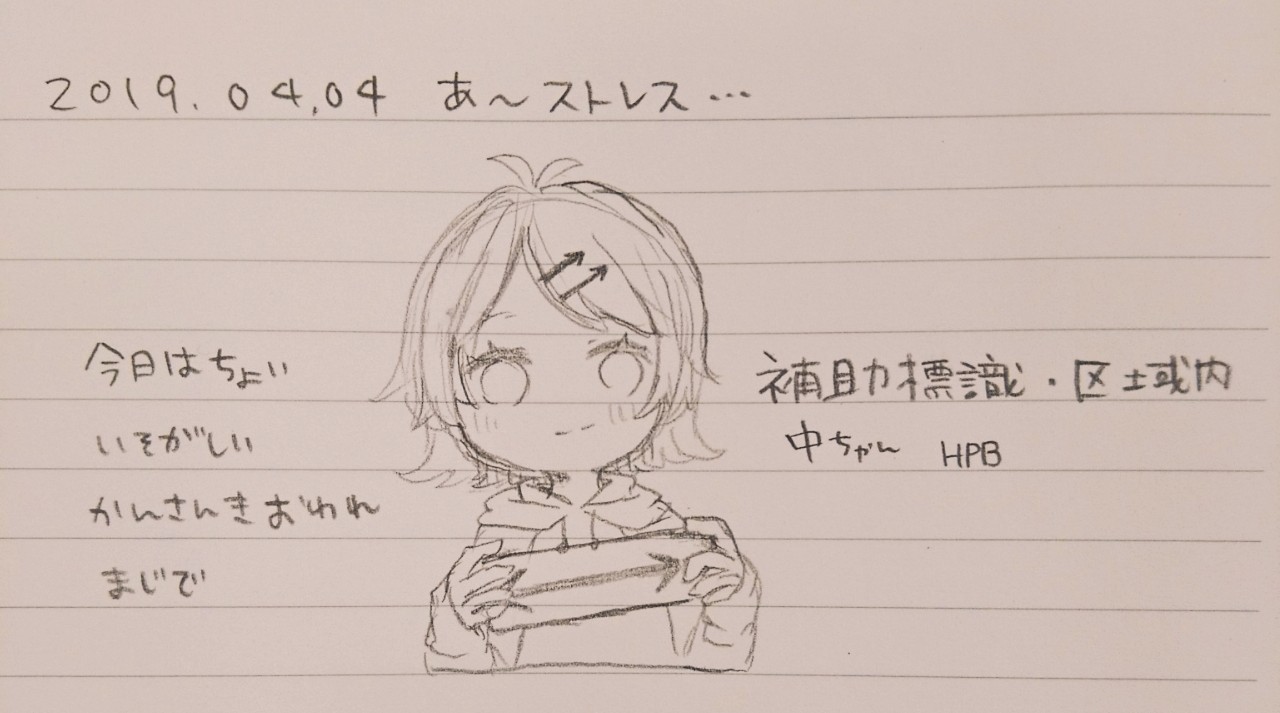 2019.04.04 あ～ストレス…
今日はちょい
いそがしい
かんさんきおわれ
まじで
補助標識・区域内
中ちゃん HPB